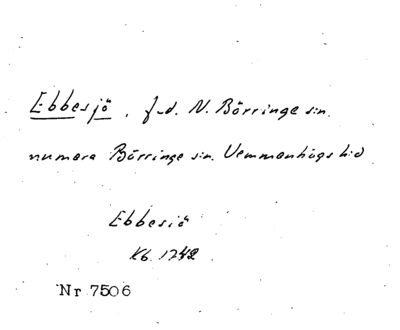 Ebbesjö, f.d. N. Börringe s:n.
numera Börringe s:n. Vemmenhögs h:d
Ebbesiö
Kb. 1742
Nr 7506